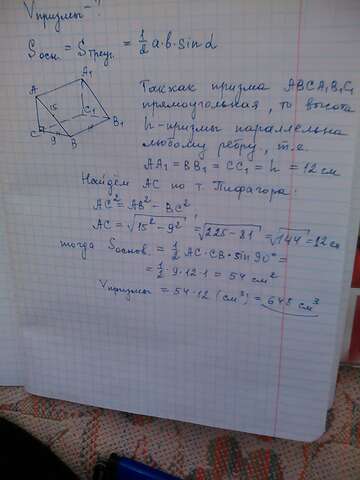 Vпризмы - ?
Sосн. = Sтреуг. = 1/2 a·b·sin α
A₁
A
15
C₁
B₁
C
9
B
Так как призма ABCA₁B₁C₁
прямоугольная, то высота
h - призмы параллельна
любому ребру, т.е.
AA₁ = BB₁ = CC₁ = h = 12 см
Найдём AC по т. Пифагора:
AC² = AB² - BC²
AC = √15² - 9² = √225 - 81 = √144 = 12 см
тогда Sоснов. = 1/2 AC · CB · sin 90° =
= 1/2 · 9 · 12 · 1 = 54 см²
Vпризмы = 54 · 12 (см³) = 648 см³